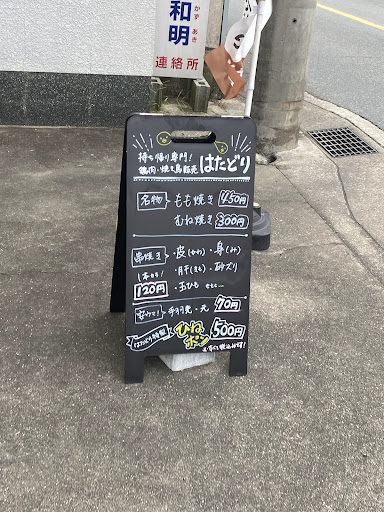 かず あき
和明
連絡所
持ち帰り専門!
鶏肉・焼き鳥販売
はたどり
名物
もも焼き 450円
むね焼き 300円
串焼き ・皮(かわ) ・身(み)
1本から! ・肝(きも) ・砂ズリ
120円 ・玉ひも etc...
安いで! ・手羽先・元 70円
はたどり特製 ひねポン 500円